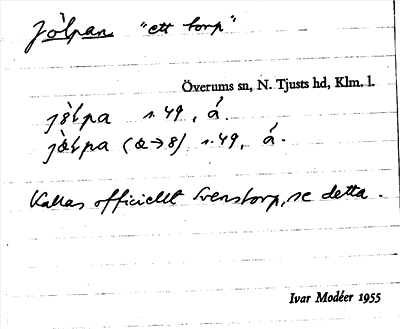 Jölpan "ett torp"
Överums sn, N. Tjusts hd, Klm. l.
s. 49, á.
s. 49, á.
Kallas officiellt Svenstorp, se detta.
Ivar Modéer 1955